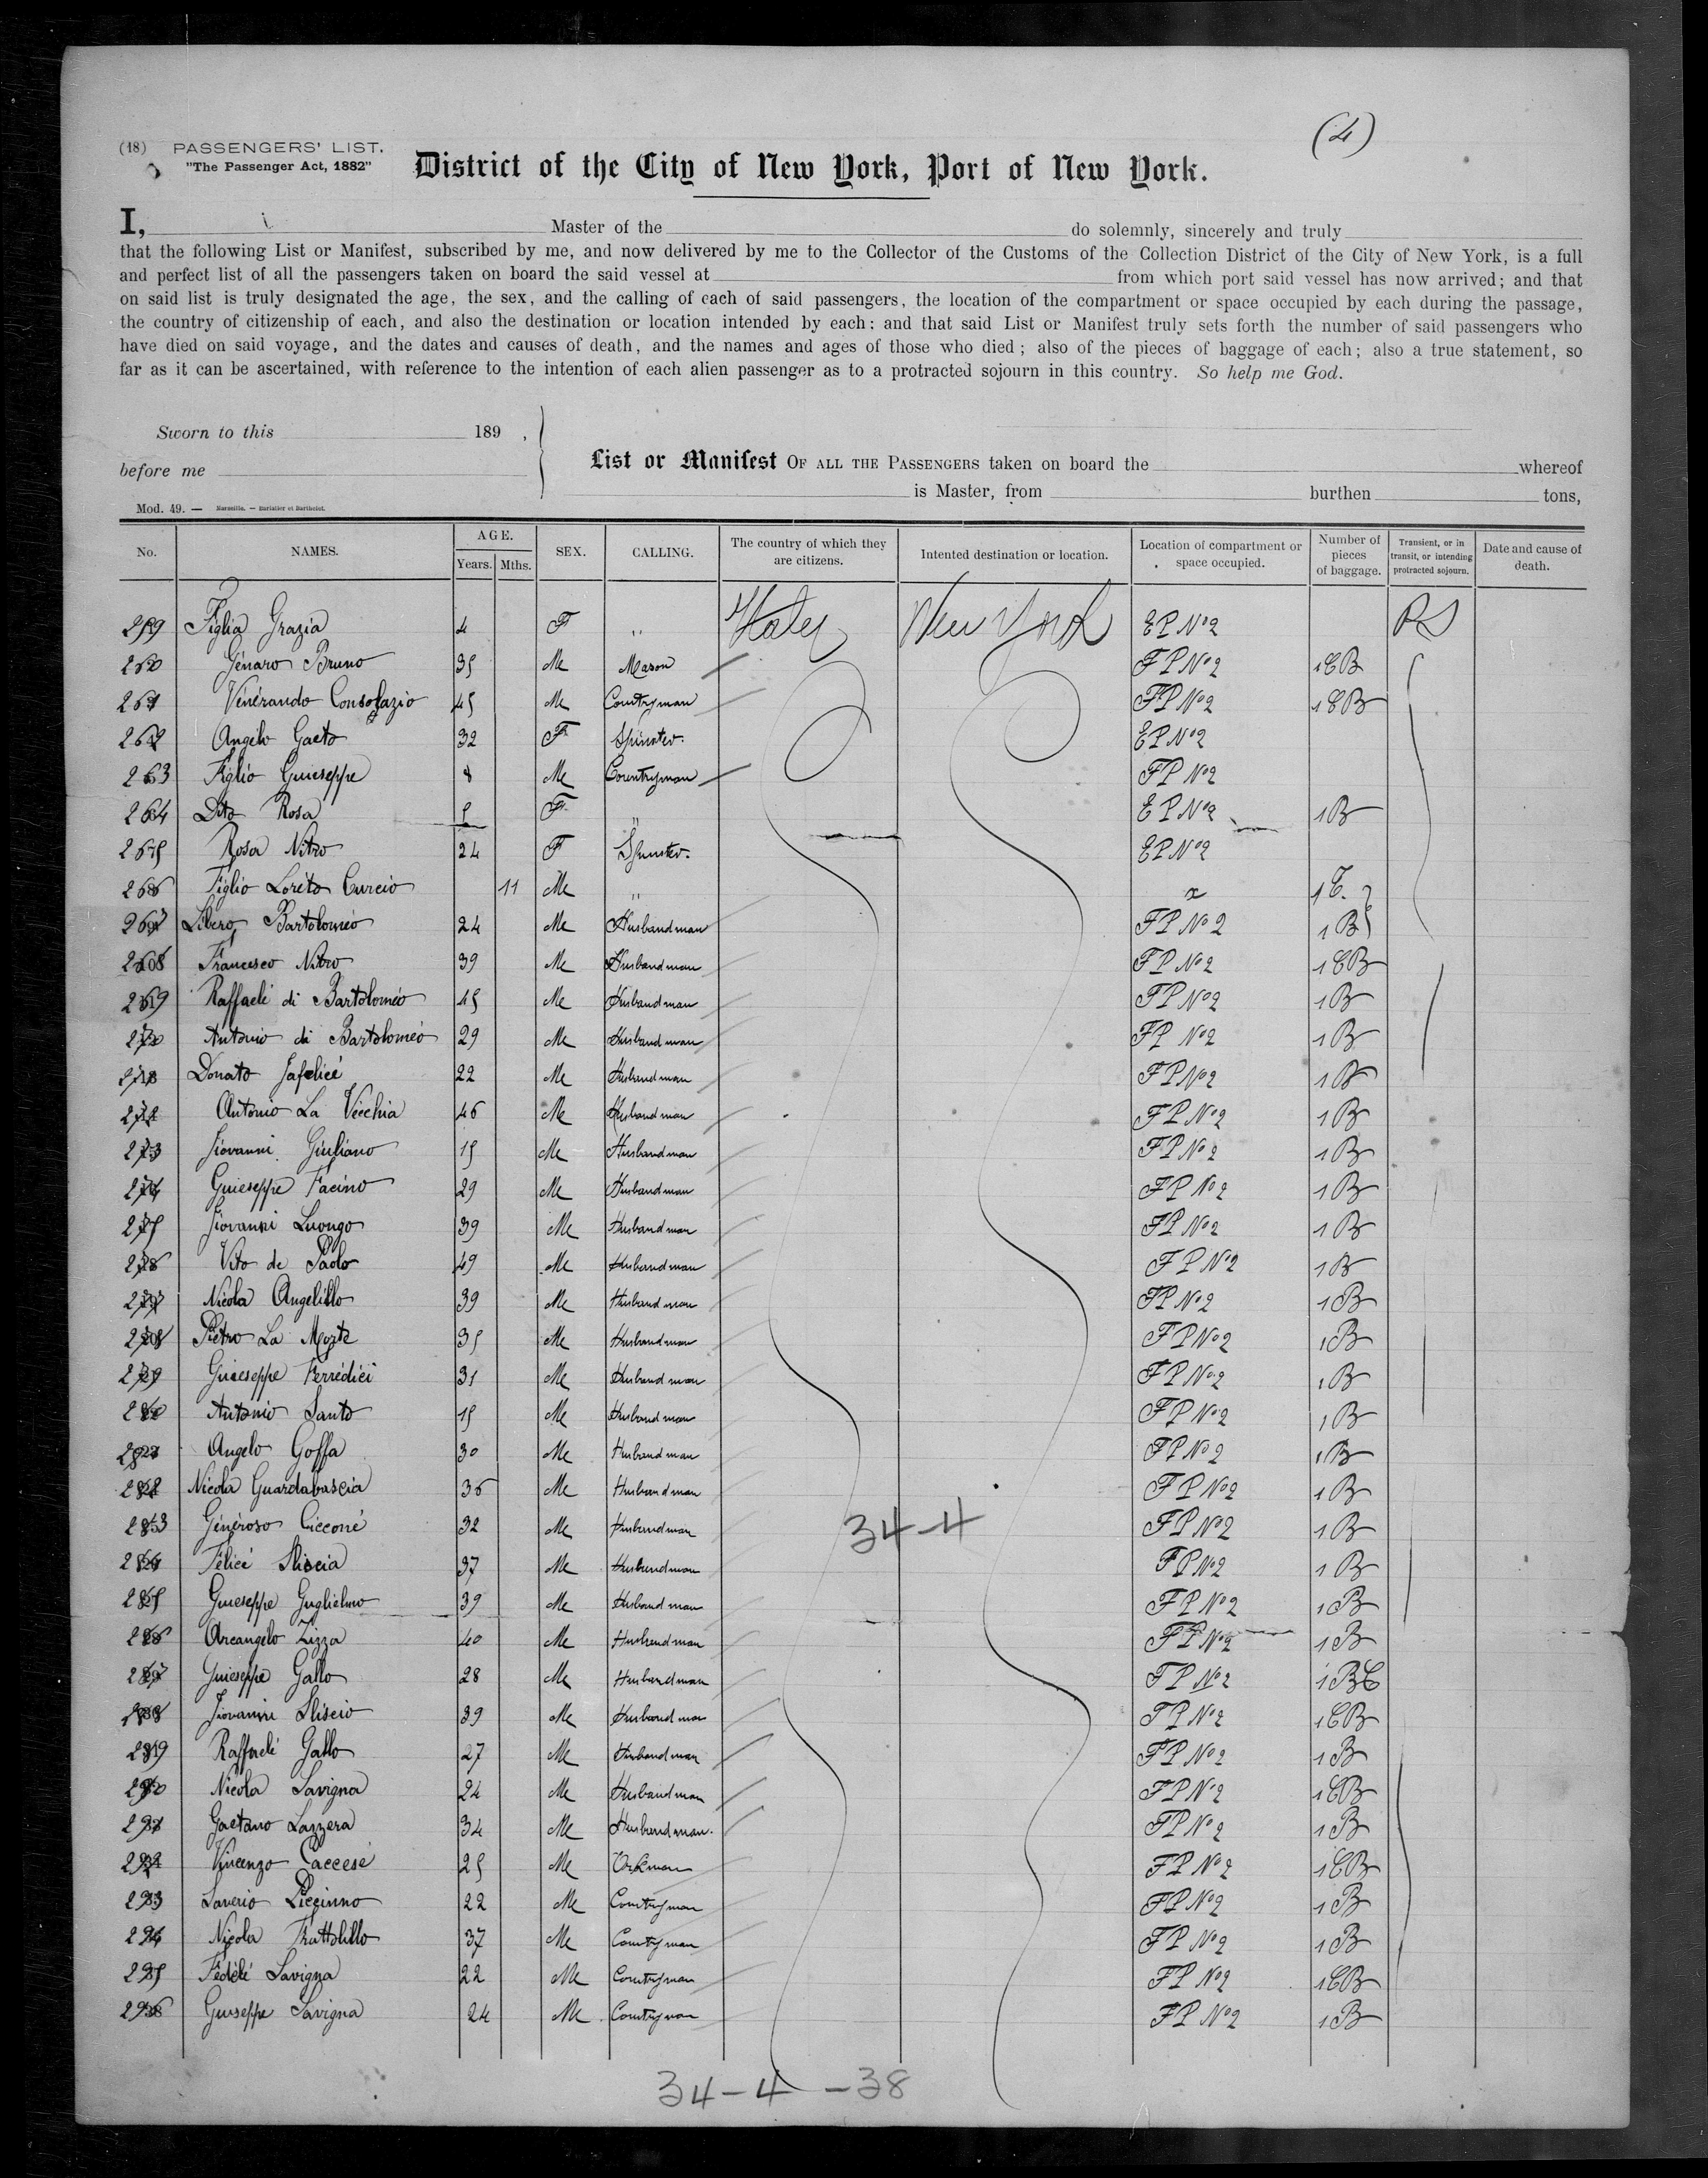 (4)
(18) PASSENGERS' LIST.
"The Passenger Act, 1882"
District of the City of New York, Port of New York.
I, Master of the do solemnly, sincerely and truly
that the following List or Manifest, subscribed by me, and now delivered by me to the Collector of the Customs of the Collection District of the City of New York, is a full
and perfect list of all the passengers taken on board the said vessel at from which port said vessel has now arrived; and that
on said list is truly designated the age, the sex, and the calling of each of said passengers, the location of the compartment or space occupied by each during the passage,
the country of citizenship of each, and also the destination or location intended by each: and that said List or Manifest truly sets forth the number of said passengers who
have died on said voyage, and the dates and causes of death, and the names and ages of those who died; also of the pieces of baggage of each; also a true statement, so
far as it can be ascertained, with reference to the intention of each alien passenger as to a protracted sojourn in this country. So help me God.
Sworn to this 189 ,
before me
List or Manifest OF ALL THE PASSENGERS taken on board the whereof
is Master, from burthen tons,
Mod. 49. — Marseille. — Barlatier et Barthelet.
No. NAMES. AGE. Years. Mths. SEX. CALLING. The country of which they are citizens. Intented destination or location. Location of compartment or space occupied. Number of pieces of baggage. Transient, or in transit, or intending protracted sojourn. Date and cause of death.
259 Figlia Grazia 4 F " Italy New York EP No 2 PS
260 Génaro Bruno 35 Me Mason FP No 2 1CB
261 Vénérando Consolazio 45 Me Countryman FP No 2 1CB
262 Angelo Gaeto 32 F Spinster. EP No 2
263 Figlio Guieseppe 8 Me Countryman FP No 2
264 Dto Rosa 5 F " EP No 2 1B
265 Rosa Nitro 24 F Spinster. EP No 2
266 Figlio Loréto Curcio 11 Me " 1C.
267 Libero Bartoloméo 24 Me Husbandman FP No 2 1B
268 Francesco Nitro 39 Me Husbandman FP No 2 1CB
269 Raffaelé di Bartoloméo 45 Me Husbandman FP No 2 1B
270 Antonio di Bartoloméo 29 Me Husbandman FP No 2 1B
271 Donato Jafelicé 22 Me Husbandman FP No 2 1B
272 Antonio La Vecchia 46 Me Husbandman FP No 2 1B
273 Jiovanni Giuliano 15 Me Husbandman FP No 2 1B
274 Guieseppe Facino 29 Me Husbandman FP No 2 1B
275 Jiovanni Luongo 39 Me Husbandman FP No 2 1B
276 Vito de Paolo 49 Me Husbandman FP No 2 1B
277 Nicola Angelillo 39 Me Husbandman FP No 2 1B
278 Piétro La Morte 35 Me Husbandman FP No 2 1B
279 Guieseppe Ferrédici 31 Me Husbandman FP No 2 1B
280 Antonio Santo 15 Me Husbandman FP No 2 1B
281 Angelo Goffa 30 Me Husbandman FP No 2 1B
282 Nicola Guardabascia 36 Me Husbandman FP No 2 1B
283 Généroso Cicconé 32 Me Husbandman 34-4 FP No 2 1B
284 Félicé Sliscia 37 Me Husbandman FP No 2 1B
285 Guieseppe Guglielmo 39 Me Husbandman FP No 2 1B
286 Arcangélo Zizza 40 Me Husbandman FP No 2 1B
287 Guieseppe Gallo 28 Me Husbandman FP No 2 1BC
288 Jiovanni Sliscio 39 Me Husbandman FP No 2 1CB
289 Raffaelé Gallo 27 Me Husbandman FP No 2 1B
290 Nicola Savigna 24 Me Husbandman FP No 2 1CB
291 Gaetano Lazzera 34 Me Husbandman. FP No 2 1B
292 Vincenzo Caccésé 25 Me Orkman FP No 2 1CB
293 Saverio Piccinno 22 Me Countryman FP No 2 1B
294 Nicola Frattolillo 37 Me Countryman FP No 2 1B
295 Fédélé Savigna 22 Me Countryman FP No 2 1CB
296 Guiseppe Savigna 24 Me Countryman FP No 2 1B
34-4 -38